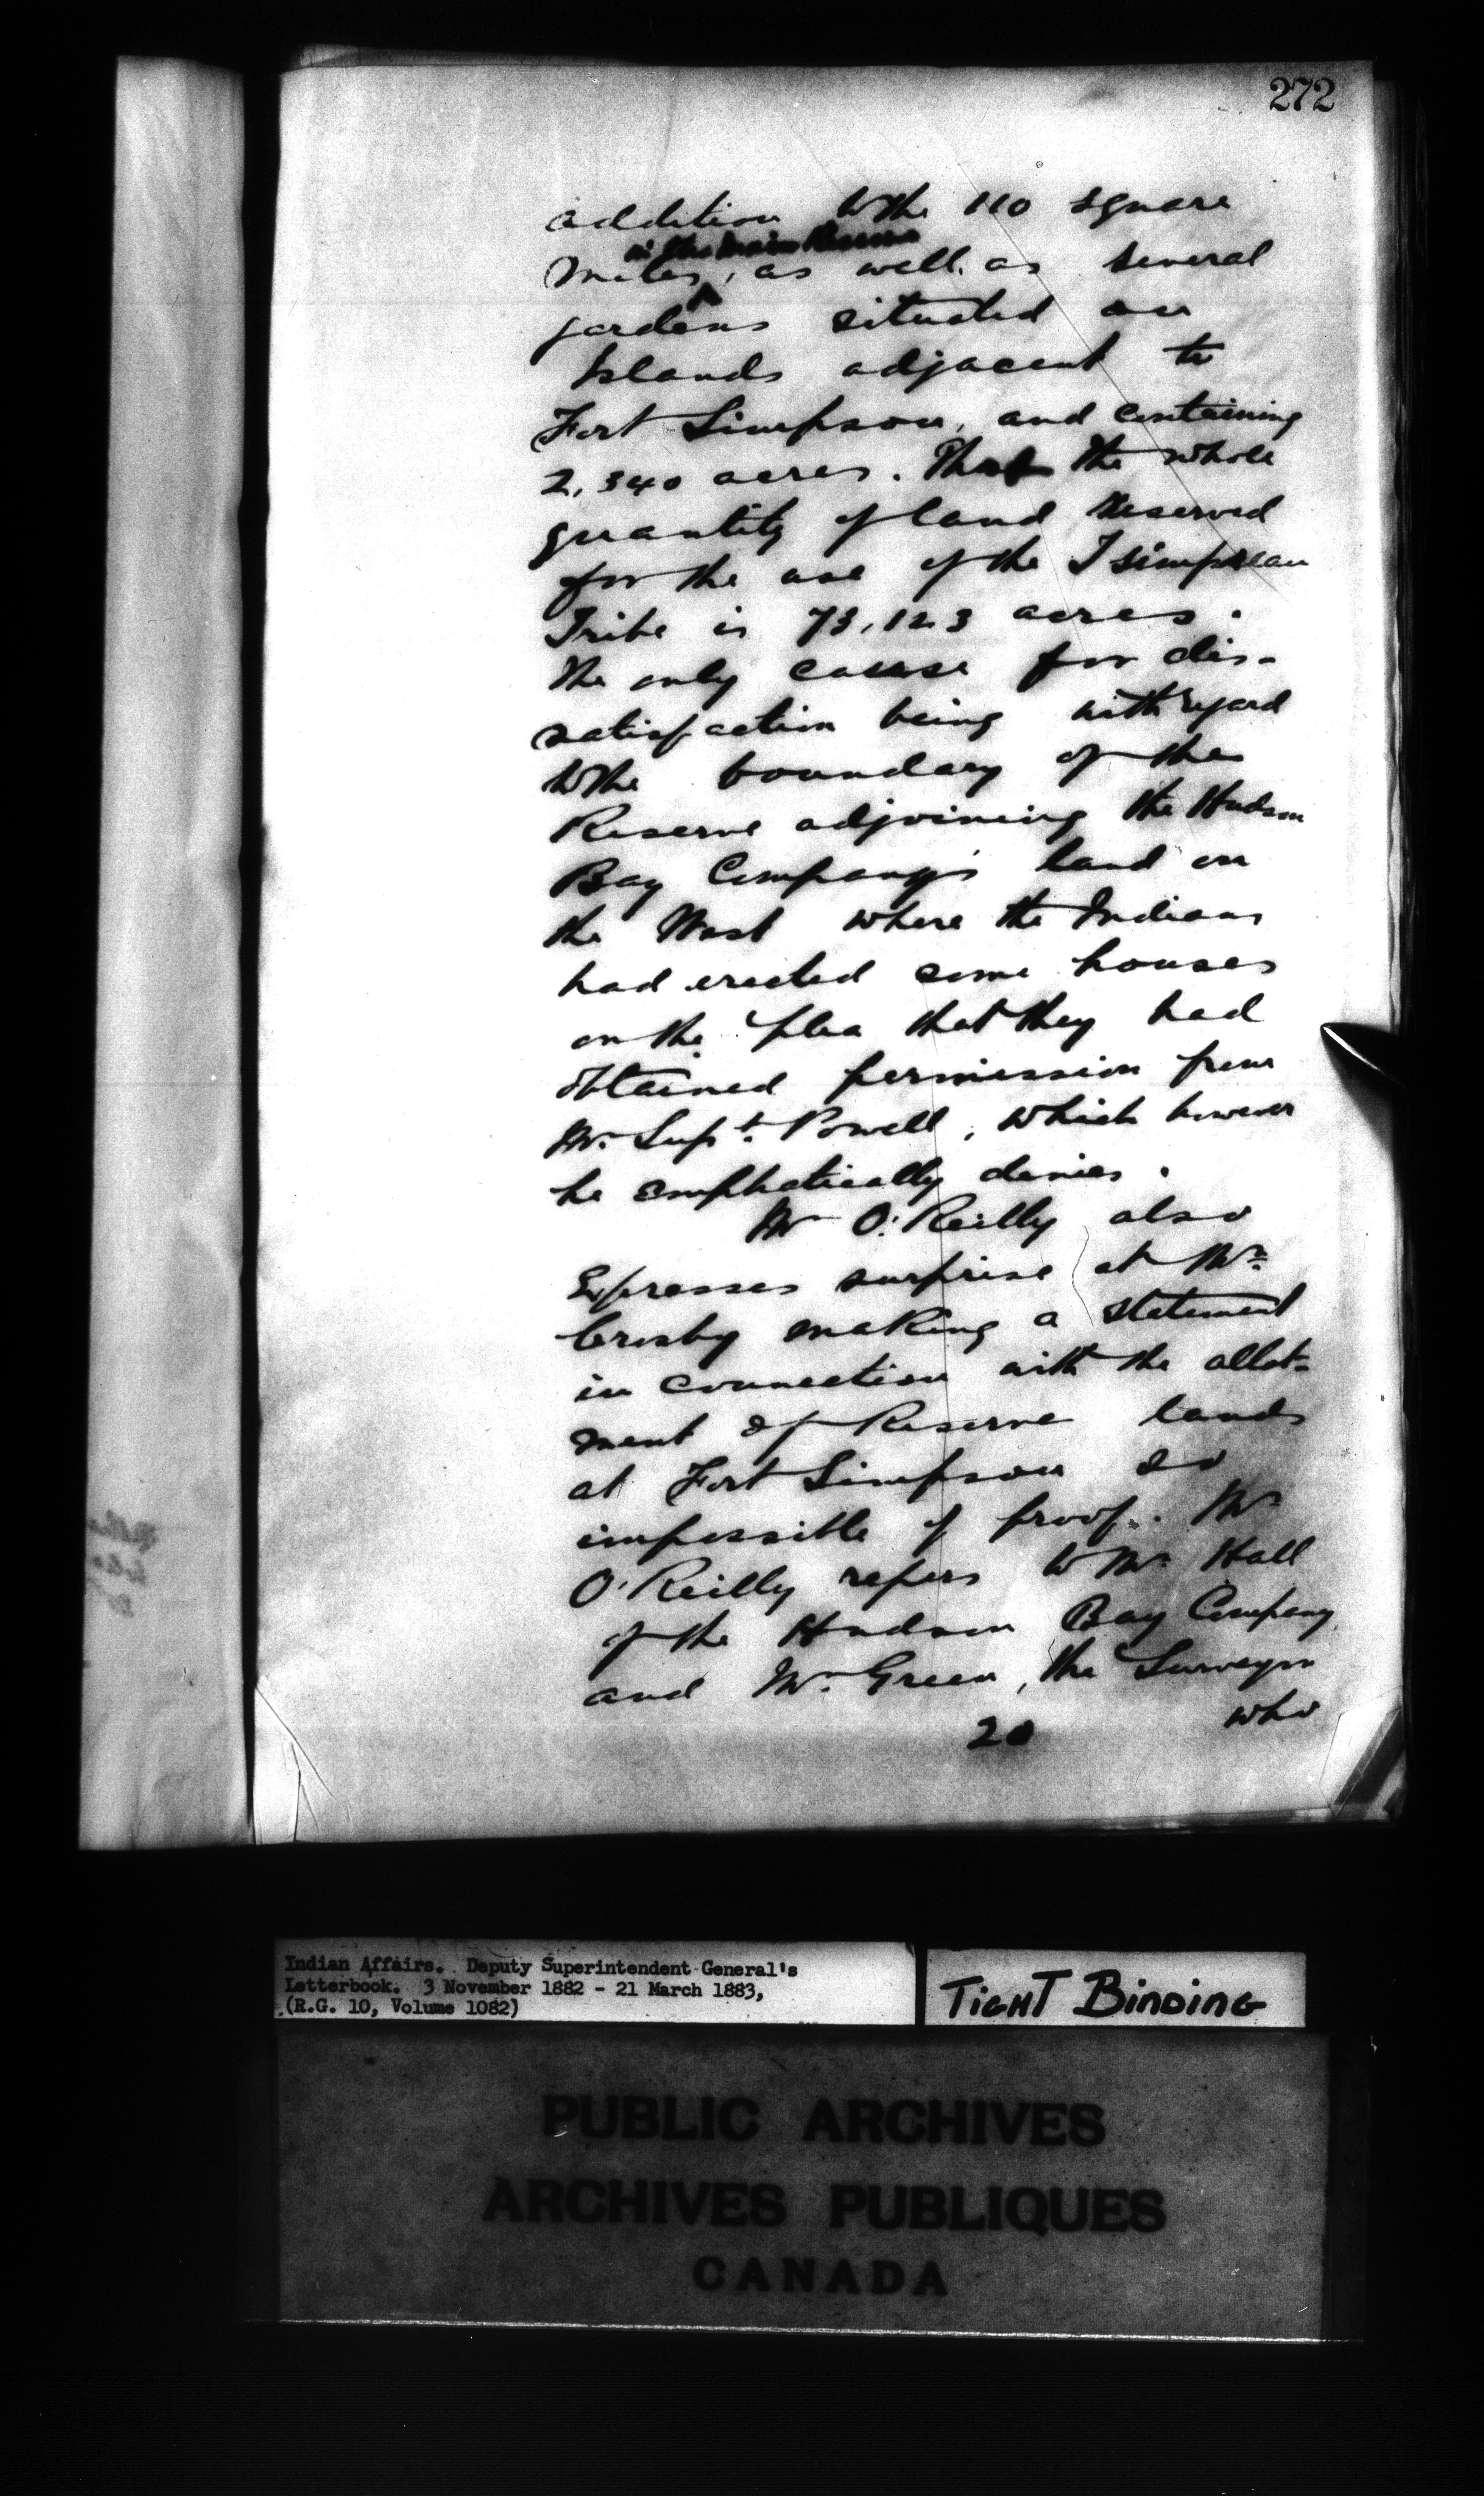 272
addition to the 110 square
in the main Reserve
miles, as well as several
gardens situated on
Islands adjacent to
Fort Simpson, and containing
2,340 acres. That the whole
quantity of land reserved
for the use of the Tsimpsean
Tribe is 73,123 acres.
The only cause for dis-
satisfaction being with regard
to the boundary of the
Reserve adjoining the Hudson
Bay Company's land on
the West where the Indians
had erected some houses
on the plea that they had
obtained permission from
Mr. Supt. Powell, which however
he emphatically denies.
Mr O'Reilly also
Expresses surprise at Mr.
Crosby making a statement
in connection with the allot-
ment of Reserve lands
at Fort Simpson so
impossible of proof. Mr
O'Reilly refers to Mr. Hall
of the Hudson Bay Company,
and Mr. Green, the Surveyor
who
20
Indian Affairs. Deputy Superintendent General's
Letterbook. 3 November 1882 - 21 March 1883,
(R.G. 10, Volume 1082)
TIGHT BINDING
PUBLIC ARCHIVES
ARCHIVES PUBLIQUES
CANADA